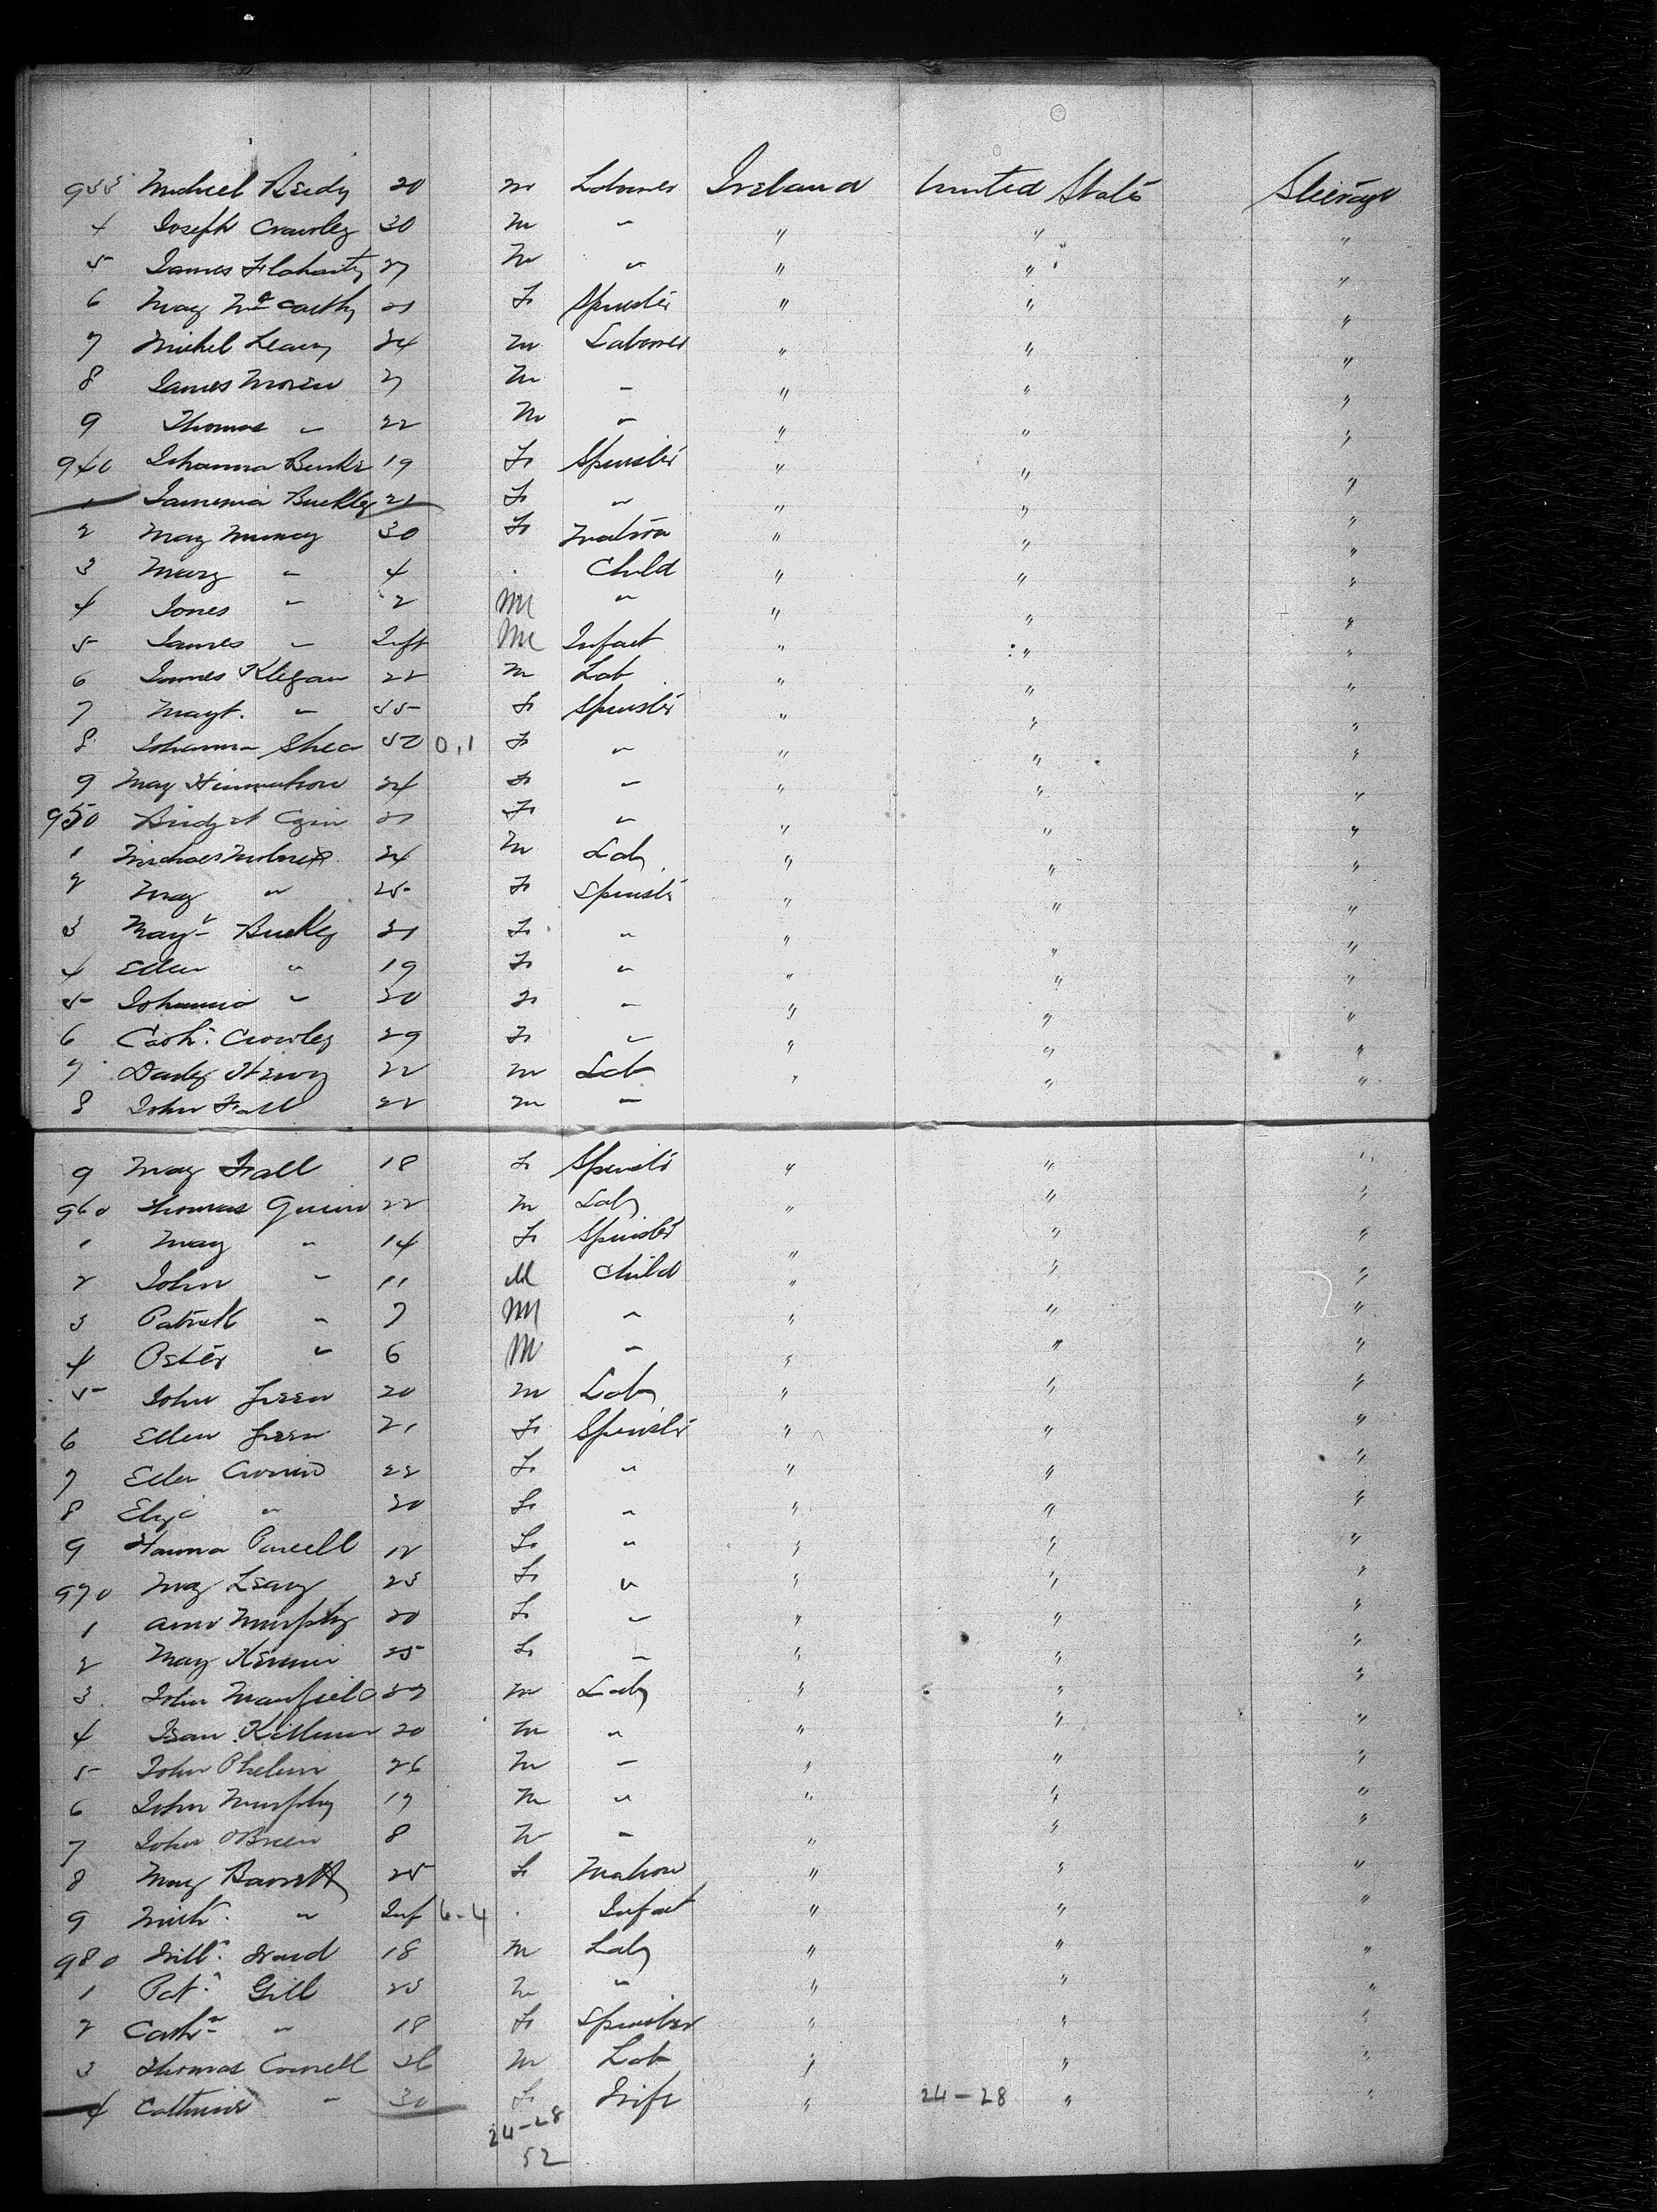 933 Michael Reidy 20 m Laborer Ireland United States Steerage
4 Joseph Crawley 30 m " " " "
5 James Flaharty 27 m " " " "
6 Mary McCarthy 21 F Spinster " " "
7 Michel Leary 24 m Laborer " " "
8 James Moren 27 m " " " "
9 Thomas " 22 m " " " "
940 Johanna Burke 19 F Spinster " " "
1 Buckley 21 F " " " "
2 May Murray 30 F Matron " " "
3 Mary " 4 Child " " "
4 Jones " 2 M " " " "
5 James " Inft M Infant " " "
6 James 22 m Lab " " "
7 Magt. " F Spinster " " "
8 Johanna Shea 50 0,1 F " " " "
9 May 24 F " " " "
950 Bridget 21 F " " " "
1 Michael 24 m Lab " " "
2 May " 25 F Spinster " " "
3 Buckley 21 F " " " "
4 Ellen " 19 F " " " "
5 Johanna " 20 F " " " "
6 Cath. Crowley 29 F " " " "
7 22 m Lab " " "
8 John Fall 22 m " " " "
9 May Fall 18 F Spinster " " "
960 Thomas Quinn 22 m Lab " " "
1 May " 14 F Spinster " " "
2 John " 11 M Child " " "
3 Patrick " 7 M " " " "
4 Peter " 6 M " " " "
5 John Green 20 m Lab " " "
6 Ellen Green 21 F Spinster " " "
7 Ellen Cronin 22 F " " " "
8 Eliza " 20 F " " " "
9 Hanna Purcell 12 F " " " "
970 May Leary 23 F " " " "
1 Ann Murphy 20 F " " " "
2 May 25 F " " " "
3 John Manfield m Lab " " "
4 20 m " " " "
5 John Phelan 26 m " " " "
6 John Murphy 19 m " " " "
7 John OBrien 8 m " " " "
8 May Barrett 25 F Matron " " "
9 Mich. " Inf 6-4 Infant " " "
980 Willm. Ward 18 m Lab " " "
1 Pat. Gill 23 m " " " "
2 Cath. " 18 F Spinster " " "
3 Thomas Connell 26 m Lab " " "
4 Catherine " 30 F Wife " 24-28 " "
24-28
52